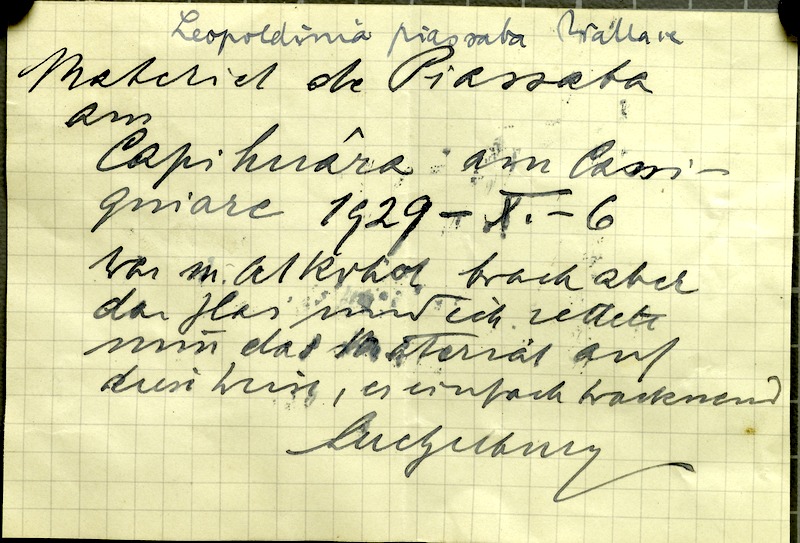 Leopoldinia piassaba Wallace
Material de Piassaba
am
Capihuára am Cassi-
quiare 1929 - X. - 6
war m. Alkohol brach aber
das Glas und ich rettete
nun das Material auf
diese Weise, es einfach trocknend
Luetzelburg